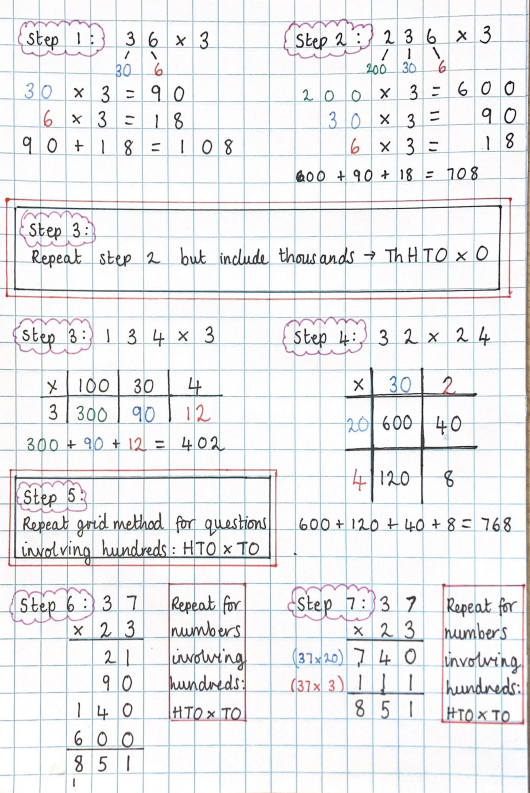 Step 1: 36 × 3
30 6
30 × 3 = 90
6 × 3 = 18
90 + 18 = 108
Step 2: 236 × 3
200 30 6
200 × 3 = 600
30 × 3 = 90
6 × 3 = 18
600 + 90 + 18 = 708
Step 3:
Repeat step 2 but include thousands → ThHTO × O
Step 3: 134 × 3
× 100 30 4
3 300 90 12
300 + 90 + 12 = 402
Step 4: 32 × 24
× 30 2
20 600 40
4 120 8
600 + 120 + 40 + 8 = 768
Step 5:
Repeat grid method for questions
involving hundreds: HTO × TO
Step 6: 37
× 23
21
90
140
600
851
1
Repeat for
numbers
involving
hundreds:
HTO × TO
Step 7: 37
× 23
(37×20) 740
(37×3) 111
851
Repeat for
numbers
involving
hundreds:
HTO × TO